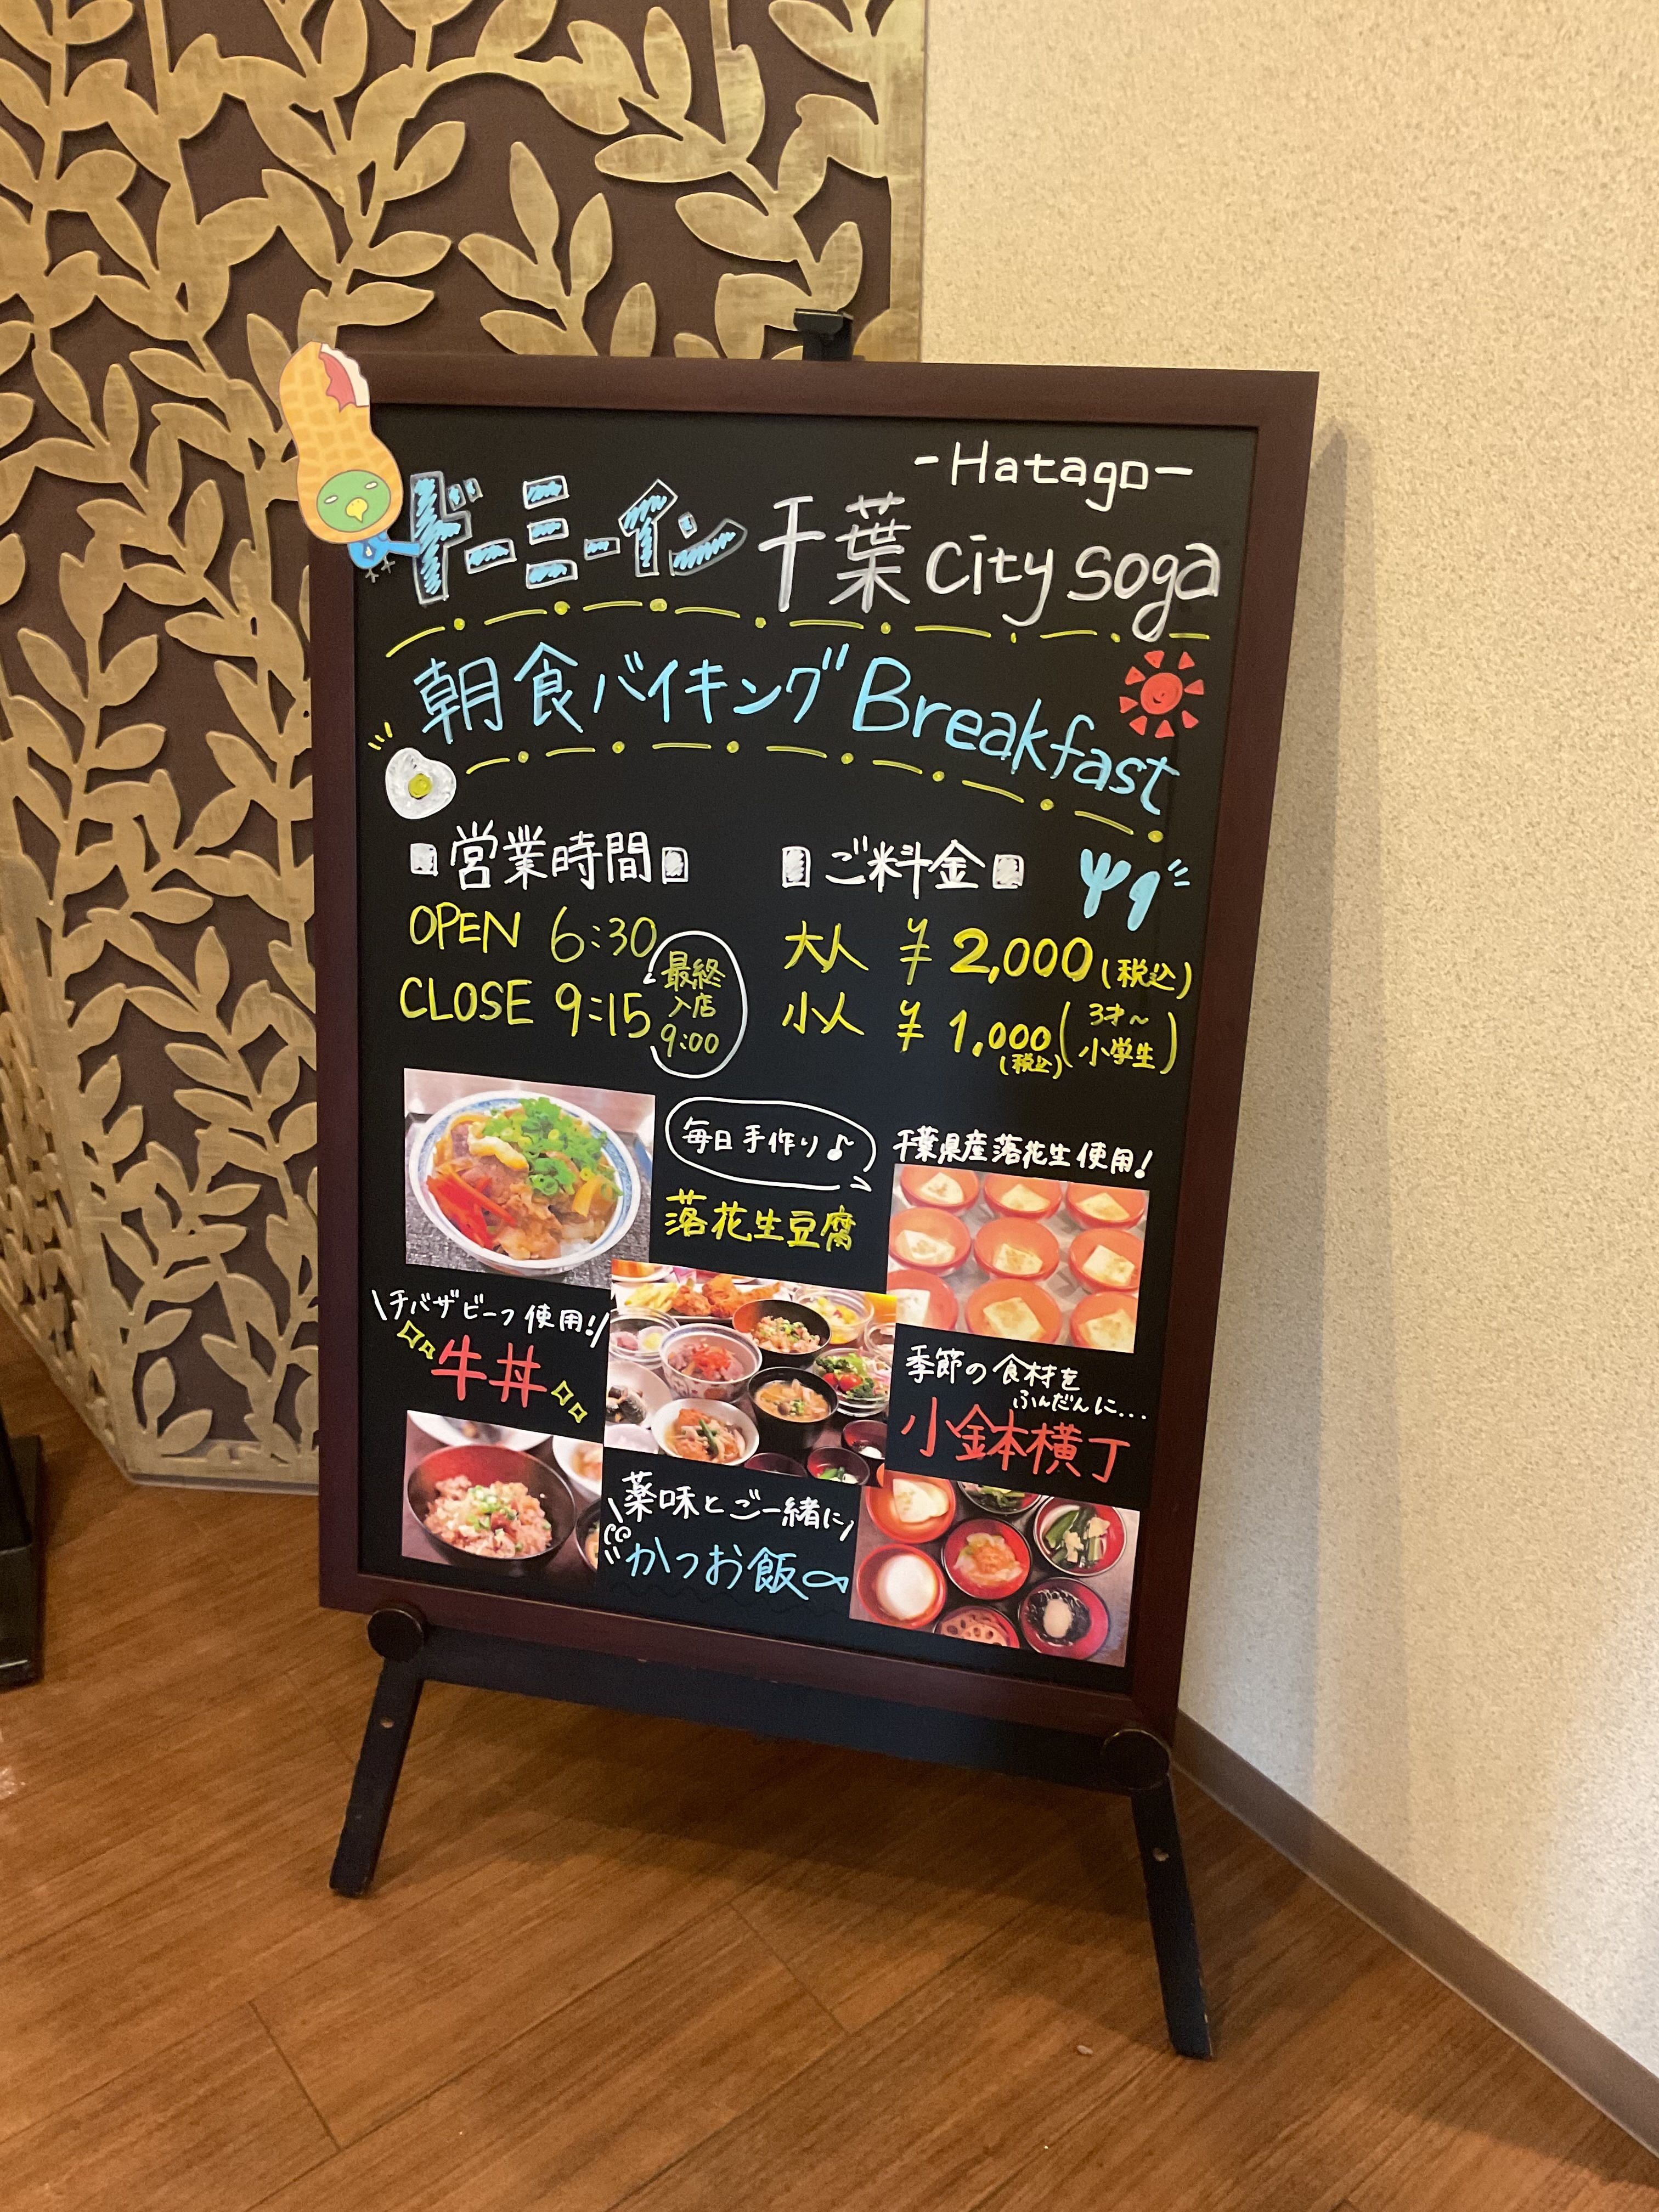 -Hatago-
ドーミーイン 千葉 city soga
朝食バイキング Breakfast
営業時間
OPEN 6:30
CLOSE 9:15
最終
入店
9:00
ご料金
大人 ¥2,000(税込)
小人 ¥1,000(税込)(3才~小学生)
毎日手作り♪
落花生豆腐
千葉県産落花生使用!
\チバザビーフ使用!/
牛丼
季節の食材を
ふんだんに...
小鉢横丁
\薬味とご一緒に/
かつお飯